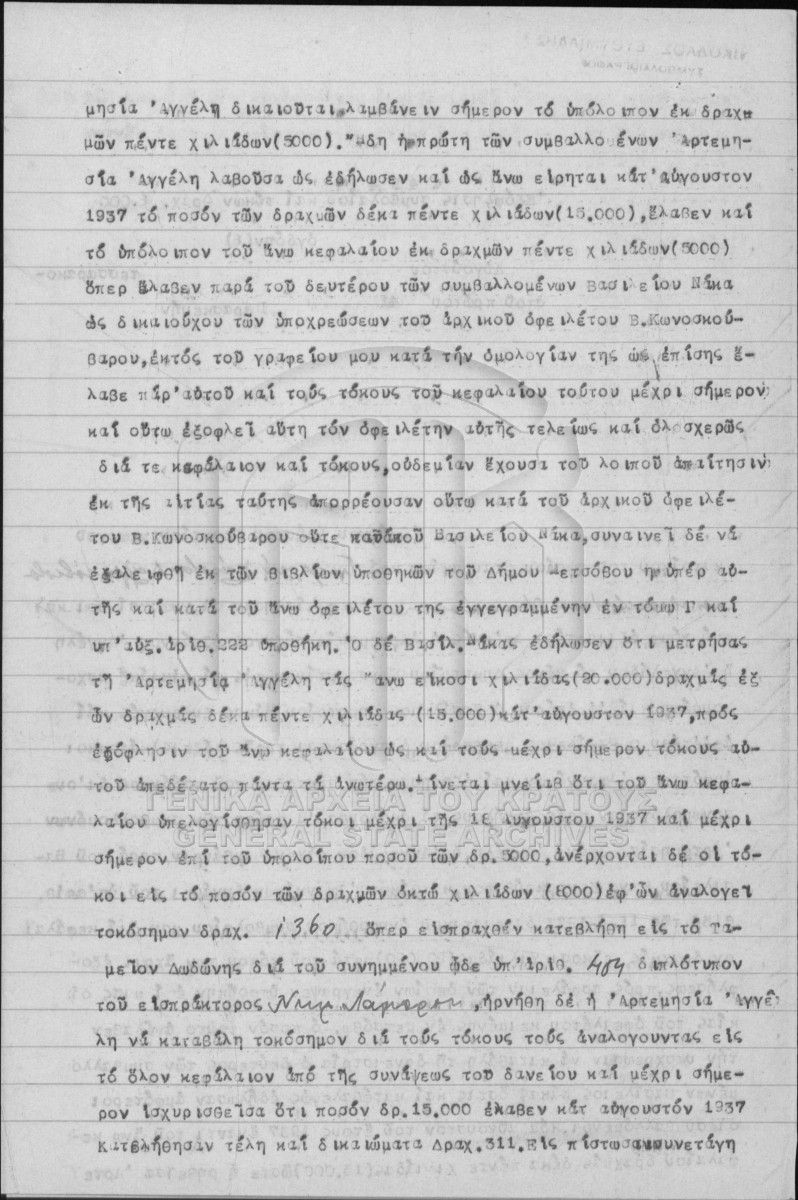 μησία Ἀγγέλη δικαιοῦται λαμβάνειν σήμερον τό ὑπόλοιπον ἐκ δραχ-
μῶν πέντε χιλιάδων(5000). δη ἡ πρώτη τῶν συμβαλλο ένων Ἀρτεμη-
σία Ἀγγέλη λαβοῦσα ὡς ἐδήλωσεν καί ὡς ἄνω εἴρηται κάτ'αὔγουστον
1937 τό ποσόν τῶν δραχμῶν δέκα πέντε χιλιάδων(15.000),ἔλαβεν καί
τό ὑπόλοιπον τοῦ ἄνω κεφαλαίου ἐκ δραχμῶν πέντε χιλιάδων(5000)
ὅπερ ἔλαβεν παρά τοῦ δευτέρου τῶν συμβαλλομένων Βασιλείου Νάκα
ὡς δικαιούχου τῶν ὑποχρεώσεων τοῦ ἀρχικοῦ ὀφειλέτου Β.Κωνοσκού-
βαρου,ἐκτός τοῦ γραφείου μου κατά τήν ὁμολογίαν της ὡς ἐπίσης ἔ-
λαβε πάρ'αὐτοῦ καί τούς τόκους τοῦ κεφαλαίου τούτου μέχρι σήμερον
καί οὕτω ἐξοφλεῖ αὕτη τόν ὀφειλέτην αὐτῆς τελείως καί ὁλοσχερῶς
διά τε κεφάλαιον καί τόκους,οὐδεμίαν ἔχουσα τοῦ λοιποῦ ἀπαίτησιν
ἐκ τῆς αἰτίας ταύτης ἀπορρέουσαν οὔτω κατά τοῦ ἀρχικοῦ ὀφειλέ-
του Β.Κωνοσκούβαρου οὔτε Βασιλείου Νάκα,συναινεῖ δέ νά
ἐξαλειφθῆ ἐκ τῶν βιβλίων ὑποθηκῶν τοῦ Δήμου Μετσόβου ἡ ὑπέρ αὐ-
τῆς καί κατά τοῦ ἄνω ὀφειλέτου της ἐγγεγραμμένην ἐν τόμω Γ καί
ὑπ'αὔξ.ἀριθ.222 ὑποθήκη.Ὁ δέ Βασίλ.Νάκας ἐδήλωσεν ὅτι μετρήσας
τῆ Ἀρτεμησία Ἀγγέλη τάς ἄνω εἴκοσι χιλιάδας(20.000)δραχμάς ἐξ
ὧν δραχμάς δέκα πέντε χιλιάδας (15.000)κάτ'αὔγουστον 1937,πρός
ἐξόφλησιν τοῦ ἄνω κεφαλαίου ὡς καί τούς μέχρι σήμερον τόκους αὐ-
τοῦ ἀπεδέξατο πάντα τά ἀνωτέρω. ίνεται μνεία ὅτι τοῦ ἄνω κεφα-
λαίου ὑπελογίσθησαν τόκοι μέχρι τῆς 18 Αὐγούστου 1937 καί μέχρι
σήμερον ἐπί τοῦ ὑπολοίπου ποσοῦ τῶν δρ.5000,ἀνέρχονται δέ οἱ τό-
κοι εἰς τό ποσόν τῶν δραχμῶν ὀκτώ χιλιάδων (8000)ἐφ'ὧν ἀναλογεῖ
τοκόσημον δραχ. 1360 ὅπερ εἰσπραχθέν κατεβλήθη εἰς τό Τα-
μεῖον Δωδώνης διά τοῦ συνημμένου ὧδε ὑπ'ἀριθ. 404 διπλότυπον
τοῦ εἰσπράκτορος ,ἠρνήθη δέ ἡ Ἀρτεμησία Ἀγγέ-
λη νά καταβάλη τοκόσημον διά τούς τόκους τούς ἀναλογοῦντας εἰς
τό ὅλον κεφάλαιον ἀπό τῆς συνάψεως τοῦ δανείου καί μέχρι σήμε-
ρον ἰσχυρισθεῖσα ὅτι ποσόν δρ.15.000 ἔλαβεν κάτ αὔγουστόν 1937
Κατεβλήθησαν τέλη καί δικαιώματα Δραχ.311.Εἰς πίστωσιν συνετάγη
ΓΕΝΙΚΑ ΑΡΧΕΙΑ ΤΟΥ ΚΡΑΤΟΥΣ
GENERAL STATE ARCHIVES